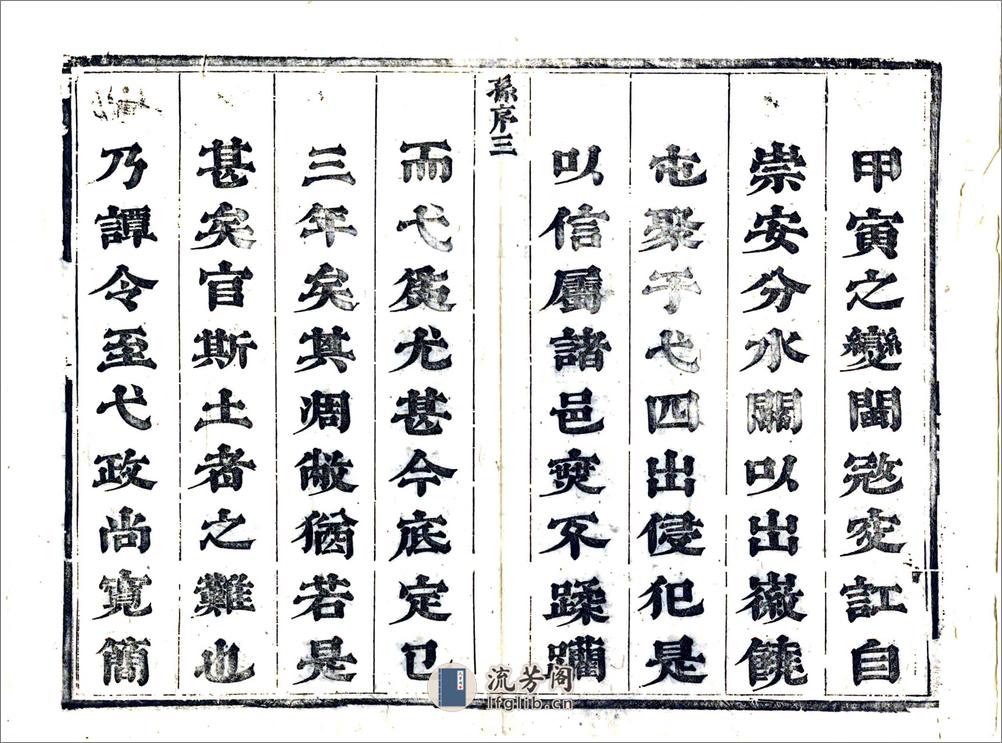 甲寅之變閩寇突訌自
崇安分水關以出徽饒
屯聚于弋四出侵犯是
以信屬諸邑不蹂躪
孫序三
而弋爲尤甚今底定已
三年矣其凋敝猶若是
甚矣官斯土者之難也
乃譚令至弋政尚寬簡
流芳阁
lfglib.cn